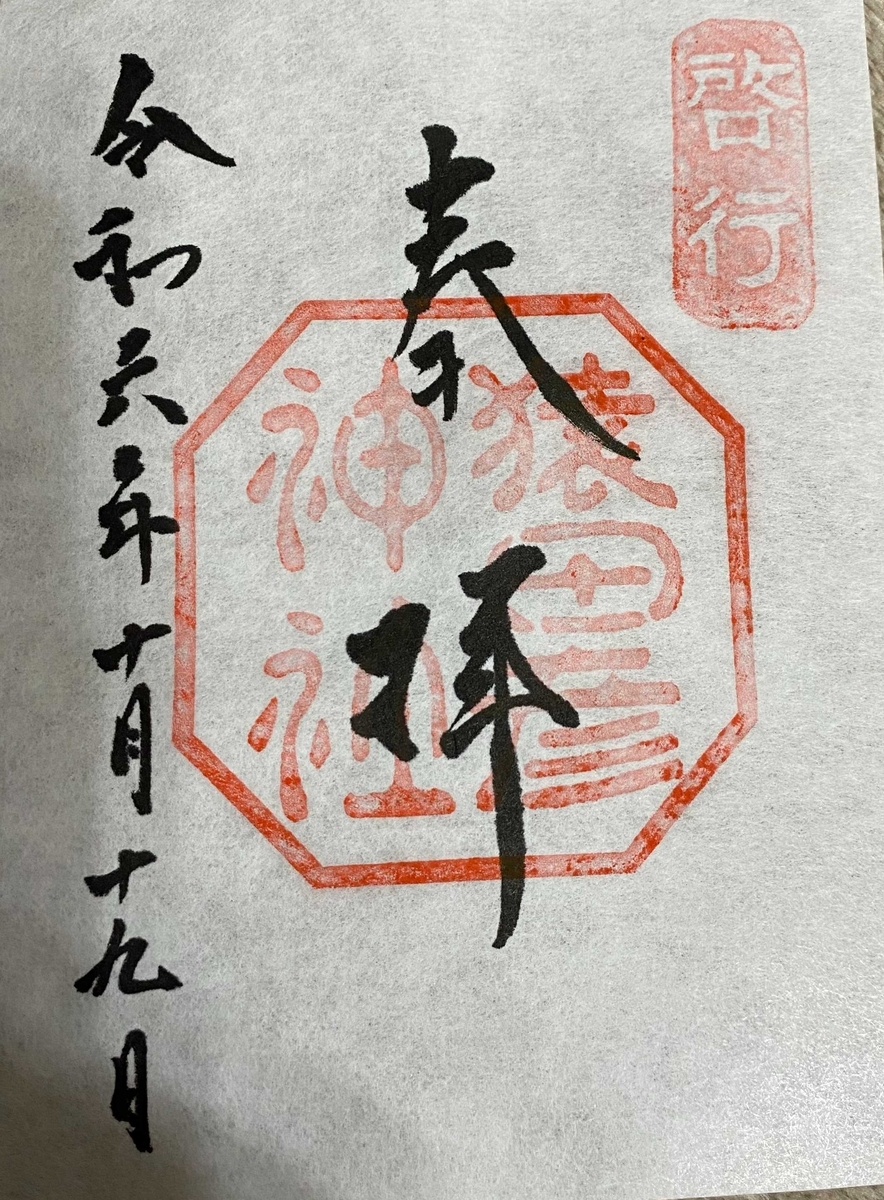 啓行
奉拝
猿田彦
神社
令和六年十月十九日